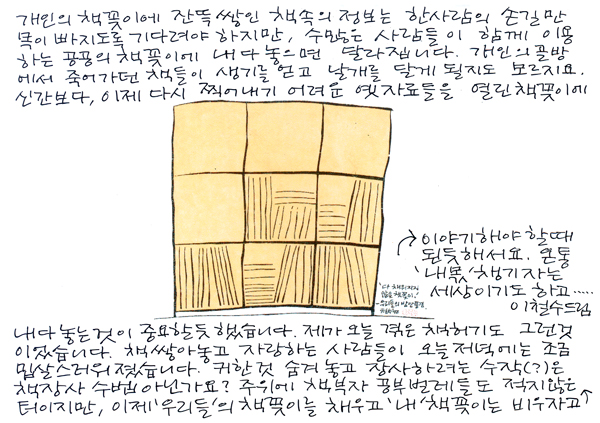 개인의 책꽂이에 잔뜩쌓인 책속의 정보는 한사람의 손길만
목이 빠지도록 기다려야 하지만, 수많은 사람들이 함께 이용
하는 공공의 책꽂이에 내다 놓으면 달라집니다. 개인의 골방
에서 죽어가던 책들이 생기를 얻고 날개를 달게 될지도 모르지요.
신간보다, 이제 다시 찍어내기 어려운 옛자료들을 열린책꽂이에
내다 놓는것이 중요할듯 했습니다. 제가 오늘 겪은 책허기도 그런것
이었습니다. 책쌓아놓고 자랑하는 사람들이 오늘저녁에는 조금
밉살스러워졌습니다. 귀한것 숨겨놓고 장사하려는 수작(?)은
책장사 수법 아닌가요? 주위에 책부자 공부벌레들도 적지않은
터이지만, 이제 '우리들'의 책꽂이를 채우고 '내'책꽂이는 비우자고
이야기해야 할때
되듯해서요. 온통
'내몫'챙기자는
세상이기도 하고......
이철수드림
'다 채워지지
않은 책꽂이.'